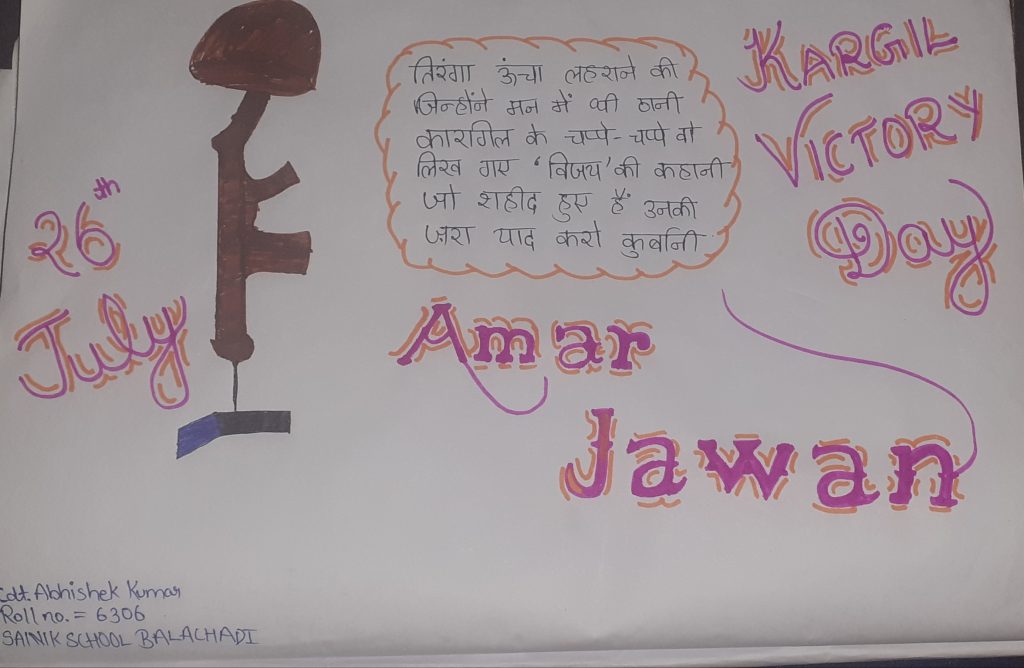 KARGIL
VICTORY
Day
26th
July
तिरंगा ऊंचा लहराने की
जिन्होंने मन में थी ठानी
कारगिल के चप्पे-चप्पे वो
लिख गए 'विजय' की कहानी
जो शहीद हुए हैं उनकी
जरा याद करो कुर्बानी
Amar
Jawan
Cdt. Abhishek Kumar
Roll no. = 6306
SAINIK SCHOOL BALACHADI